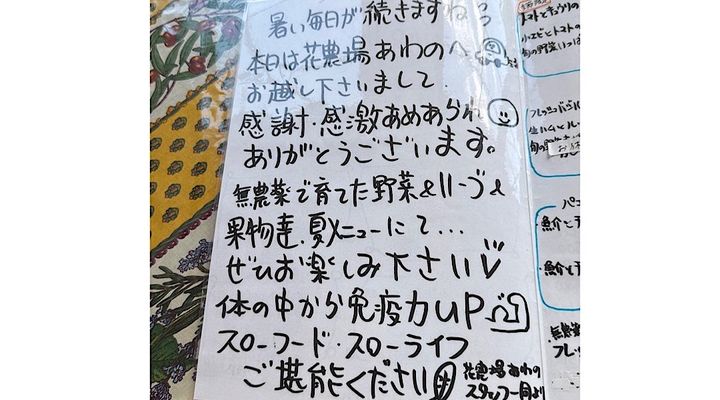 暑い毎日が続きますね
本日は花農場あわのへ
お越し下さいまして
感謝・感激あめあられ
ありがとうございます。
無農薬で育てた野菜&ハーブ&
果物達、夏メニューにて...
ぜひお楽しみ下さい
体の中から免疫力UP
スローフード・スローライフ
ご堪能ください
花農場あわの
スタッフ一同より
トマトとキュウリの
小エビとトマトの
旬の野菜いっぱ
・魚介と
・魚介と
・無農薬
フレッ